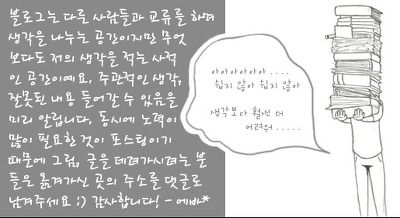 블로그는 다른 사람들과 교류를 하며
생각을 나누는 공간이지만 무엇
보다도 저의 생각을 적는 사적
인 공간이에요. 주관적인 생각,
잘못된 내용 들어갈 수 있음을
미리 알립니다. 동시에 노력이
많이 필요한 것이 포스팅이기
때문에 그림, 글을 데려가시려는 분
들은 옮겨가신 곳의 주소를 댓글로
남겨주세요 ;) 감사합니다! - 에바*
아아아아아아아.....
쉽지 않아 쉽지 않아
생각보다 훨씬 더
어려워.....